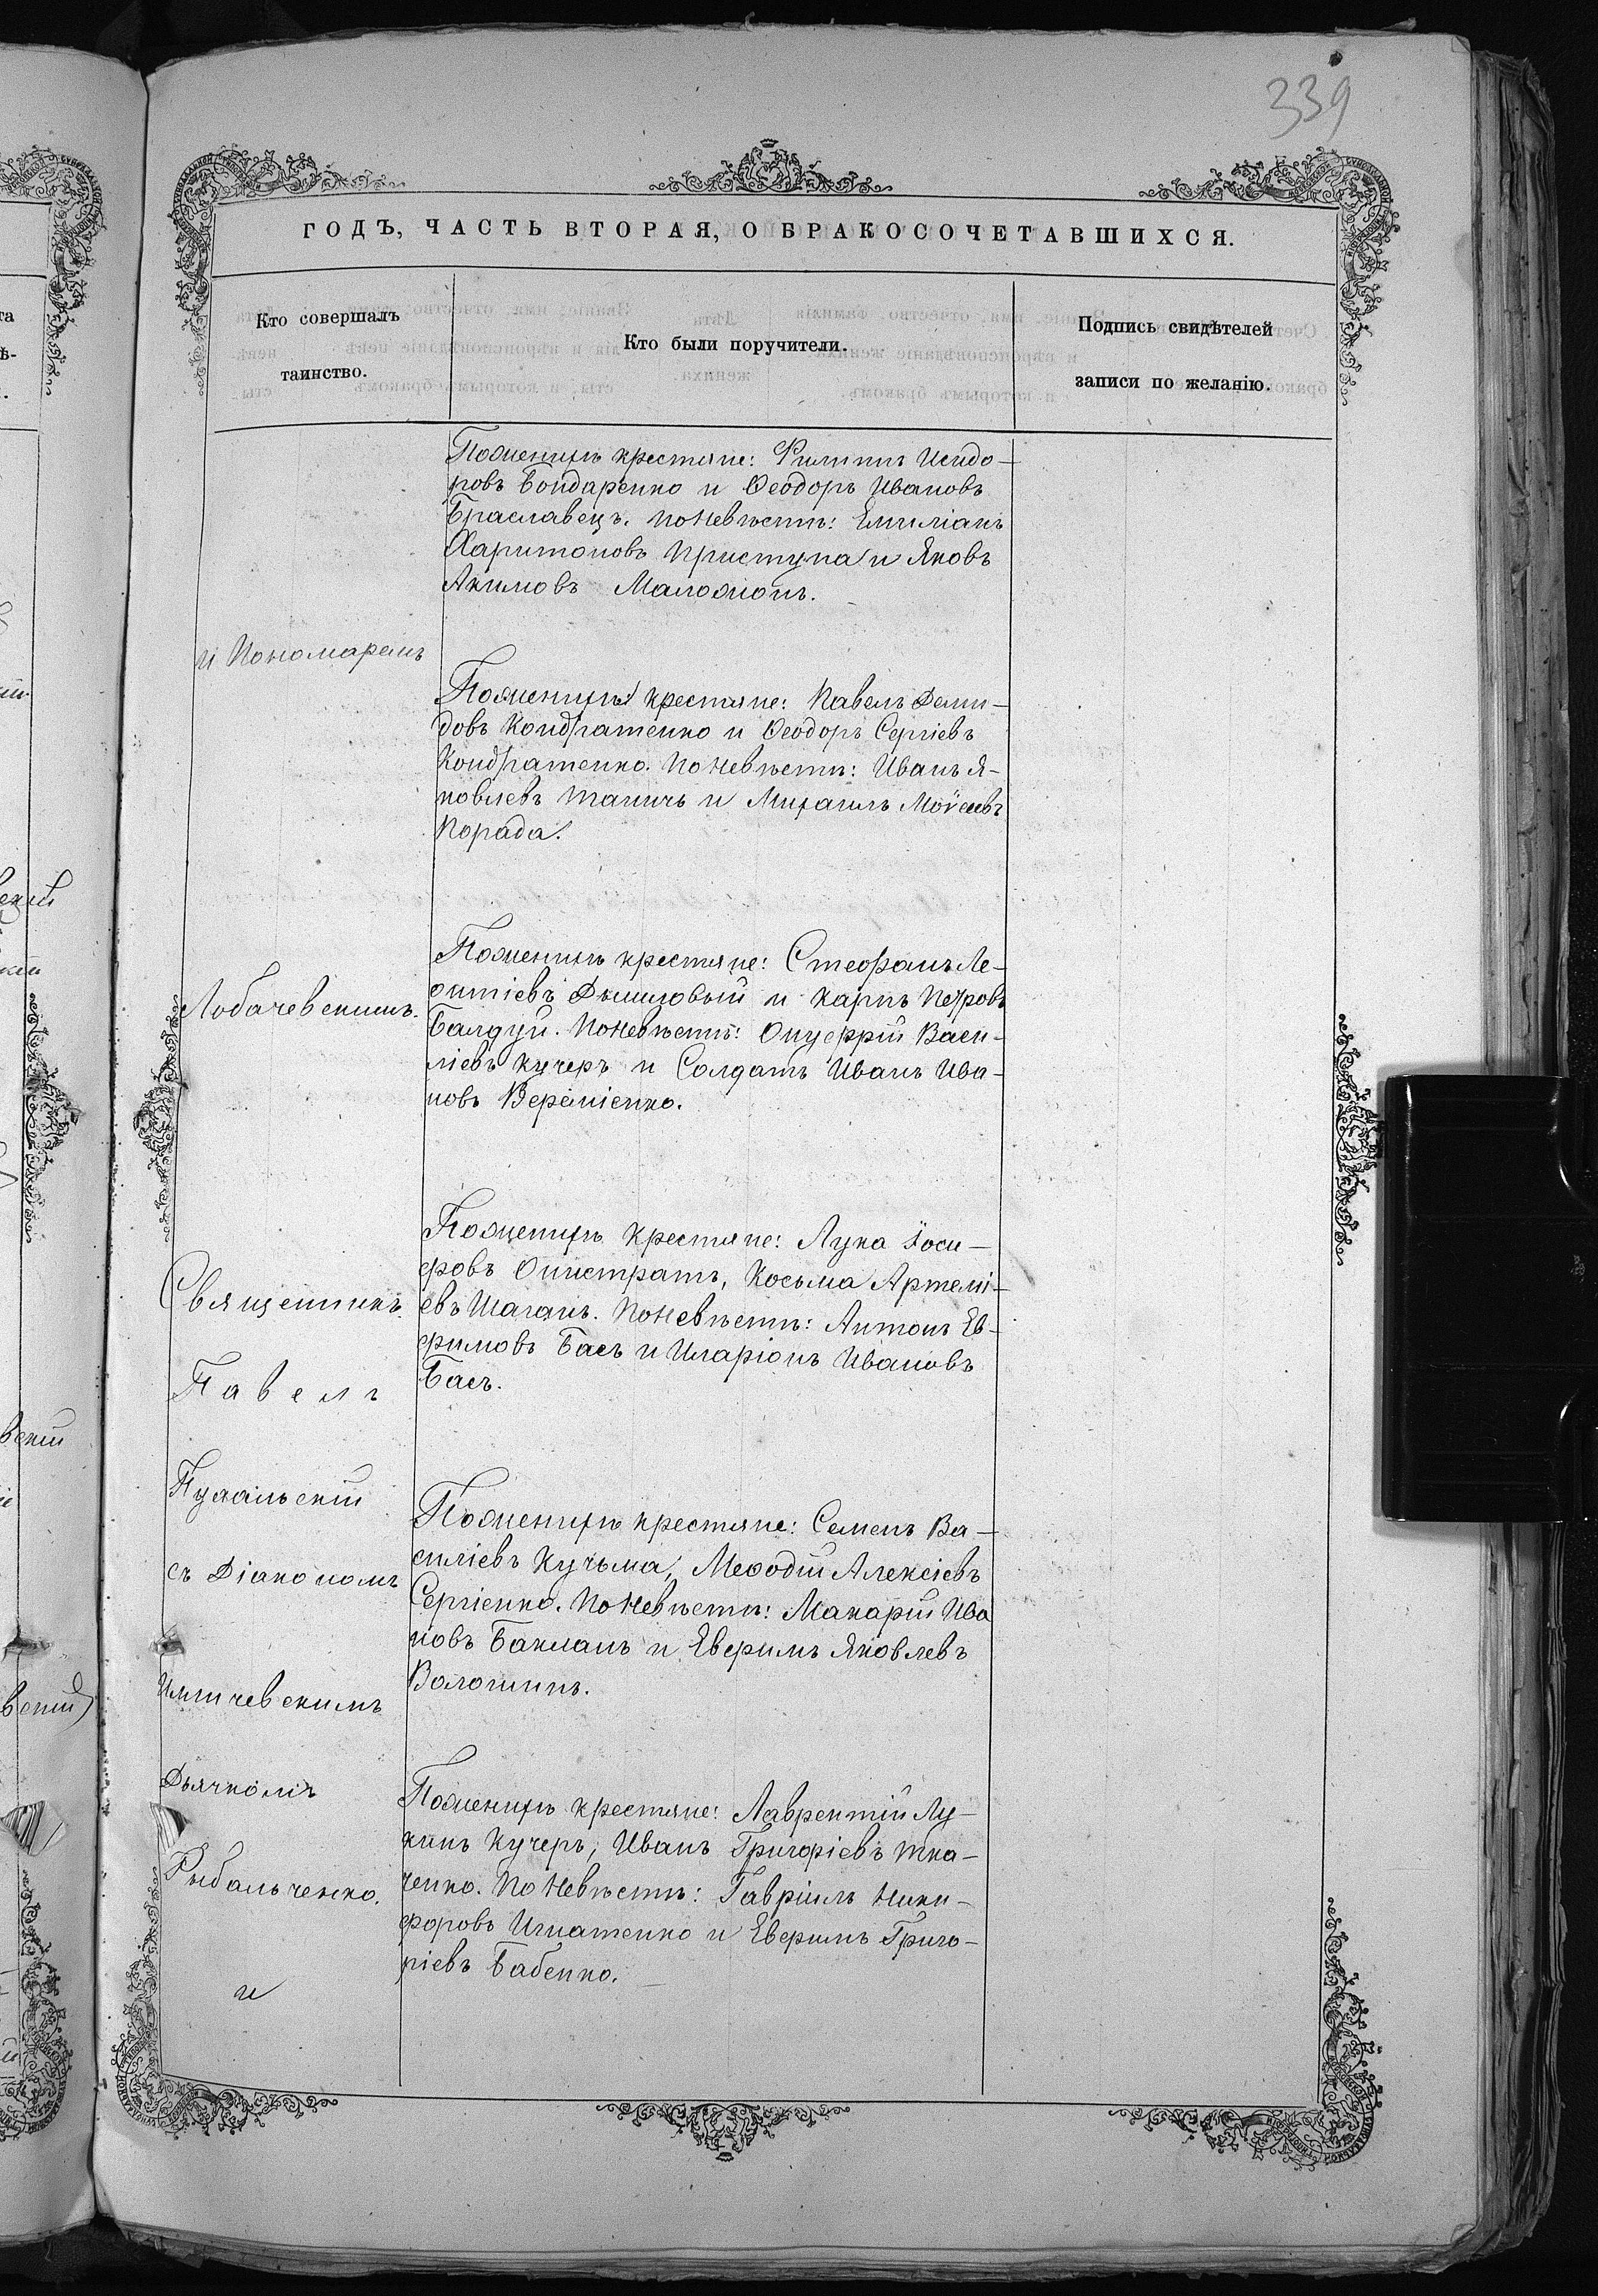 339
ГОДЪ, ЧАСТЬ ВТОРАЯ, О БРАКОСОЧЕТАВШИХСЯ.
Кто совершалъ
таинство.
Кто были поручители.
Подпись свидѣтелей
записи по желанію.
По женихѣ крестяне: Филиппъ Исидо-
ровъ Бондаренко и Ѳеодоръ Ивановъ
Браславецъ. По невѣстѣ: Емиліанъ
Харитоновъ Приступа и Яковъ
Акимовъ
и Пономаремъ
По женихѣ крестяне: Павелъ Деми-
довъ Кондратенко и Ѳеодоръ Сергіевъ
Кондратенко. По невѣстѣ: Иванъ Я-
ковлевъ и Михаилъ Моѵсеевъ
Корада.
По женихѣ крестяне: Стефанъ Ле-
онтіевъ Дышловый и Карпъ Петровъ
Балдуй. По невѣстѣ: Онуфрій Васи-
ліевъ Кучеръ и Солдатъ Иванъ Ива-
новъ Вереміенко.
Лобачевскимъ.
По женихѣ крестяне: Лука Іоси-
фовъ Онистратъ, Косьма Артемі-
евъ Шаганъ. По невѣстѣ: Антонъ Ев-
фимовъ Басъ и Иларіонъ Ивановъ
Басъ.
Священникъ
Павелъ
По женихѣ крестяне: Семенъ Ва-
силіевъ Кучьма, Меѳодій Алексіевъ
Сергіенко. По невѣстѣ: Макарій Ива
новъ Бакланъ и Евфимъ Яковлевъ
Волошинъ.
съ Діакономъ
Имшчевскимъ
Дьячкомъ
Рыбальченко.
и
По женихѣ крестяне: Лаврентій Лу-
кинъ Кучеръ, Иванъ Григоріевъ Тка-
ченко. По невѣстѣ: Гавріилъ Ники-
форовъ Игнатенко и Евфимъ Григо-
ріевъ Бабенко.